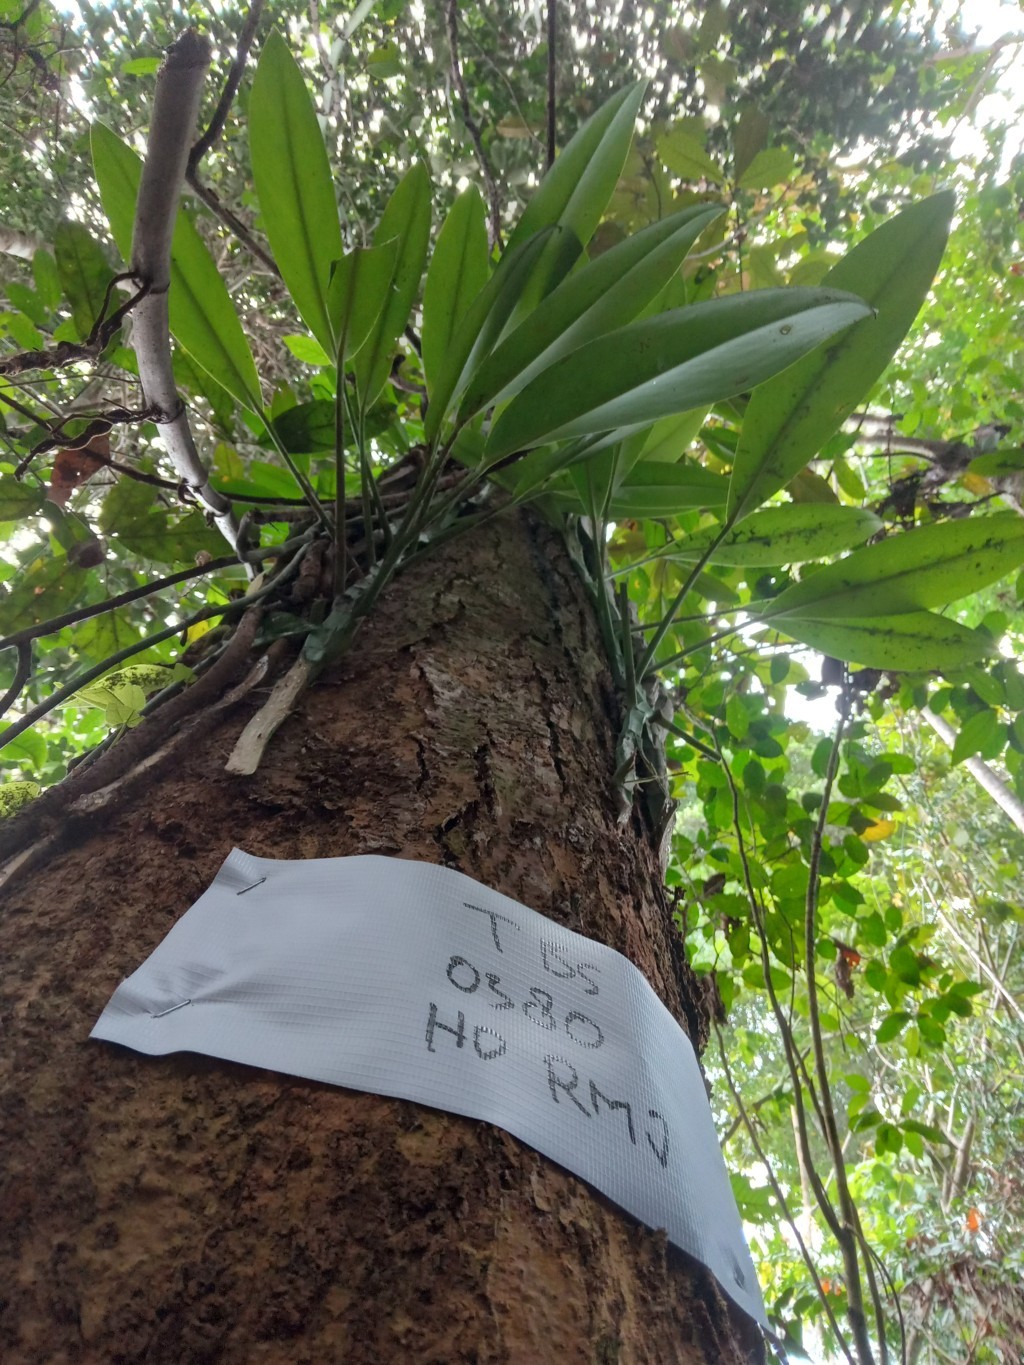 T BS
0380
HO RMJ